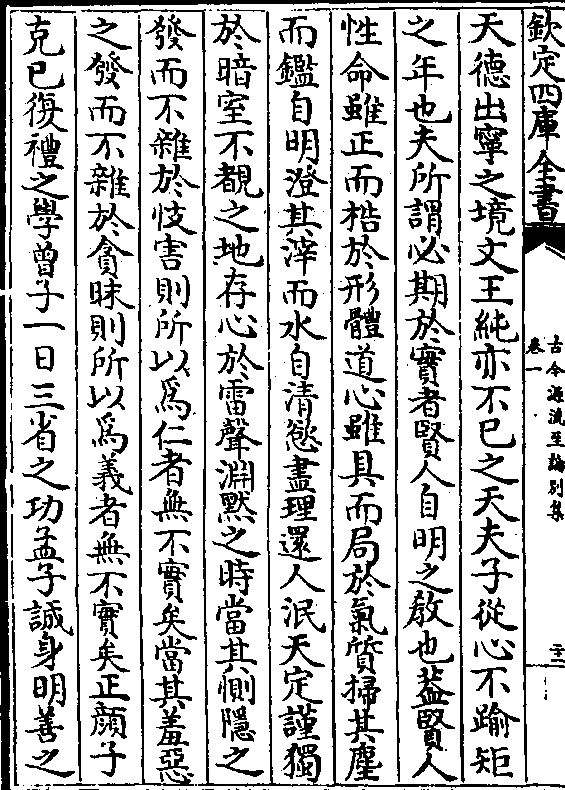 欽定四庫全書
古今源流至論別集
卷一
二十二
天德出寧之境文王純亦不已之天夫子從心不踰矩
之年也夫所謂必期於實者賢人自明之教也葢賢人
性命雖正而梏於形體道心雖具而局於氣質掃其塵
而鑑自明澄其滓而水自清慾盡理還人泯天定謹獨
於暗室不覩之地存心於雷聲淵黙之時當其惻隱之
發而不雜於忮害則所以爲仁者無不實矣當其羞惡
之發而不雜於貪昧則所以爲義者無不實矣正顔子
克已復禮之學曾子一日三省之功孟子誠身明善之